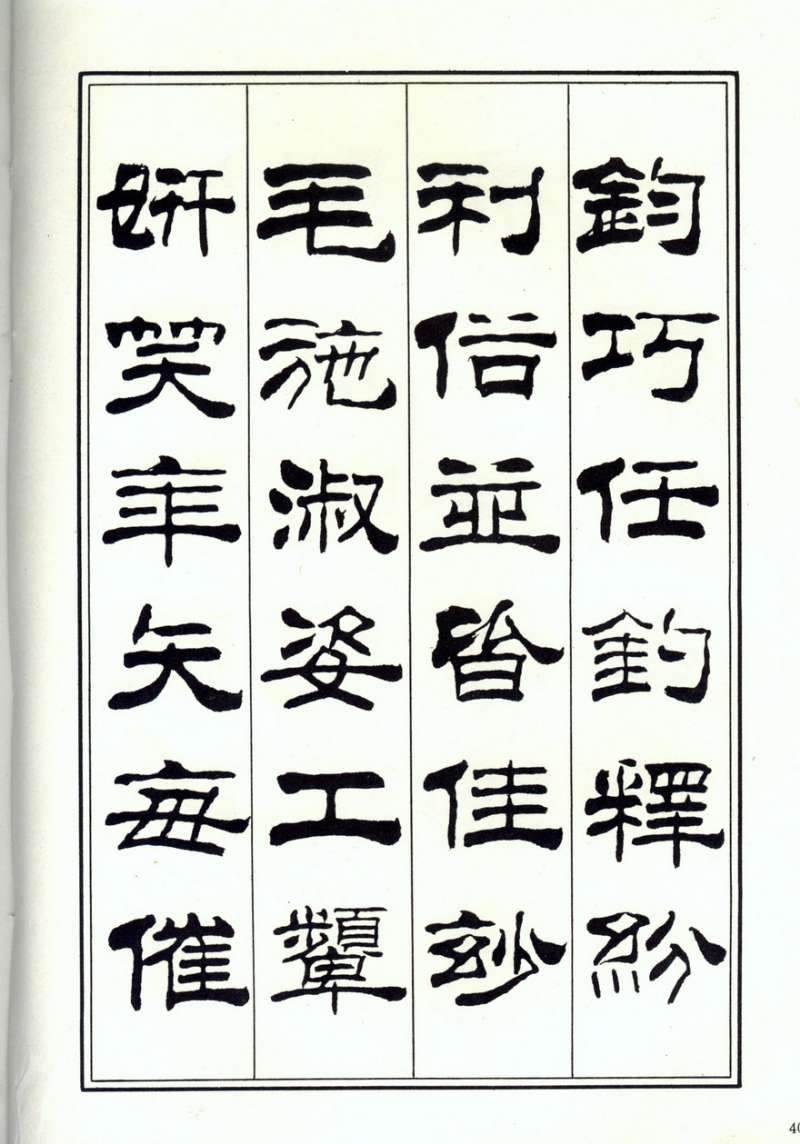 鈞巧任釣釋紛
利俗並皆佳妙
毛施淑姿工顰
妍笑年矢每催
40